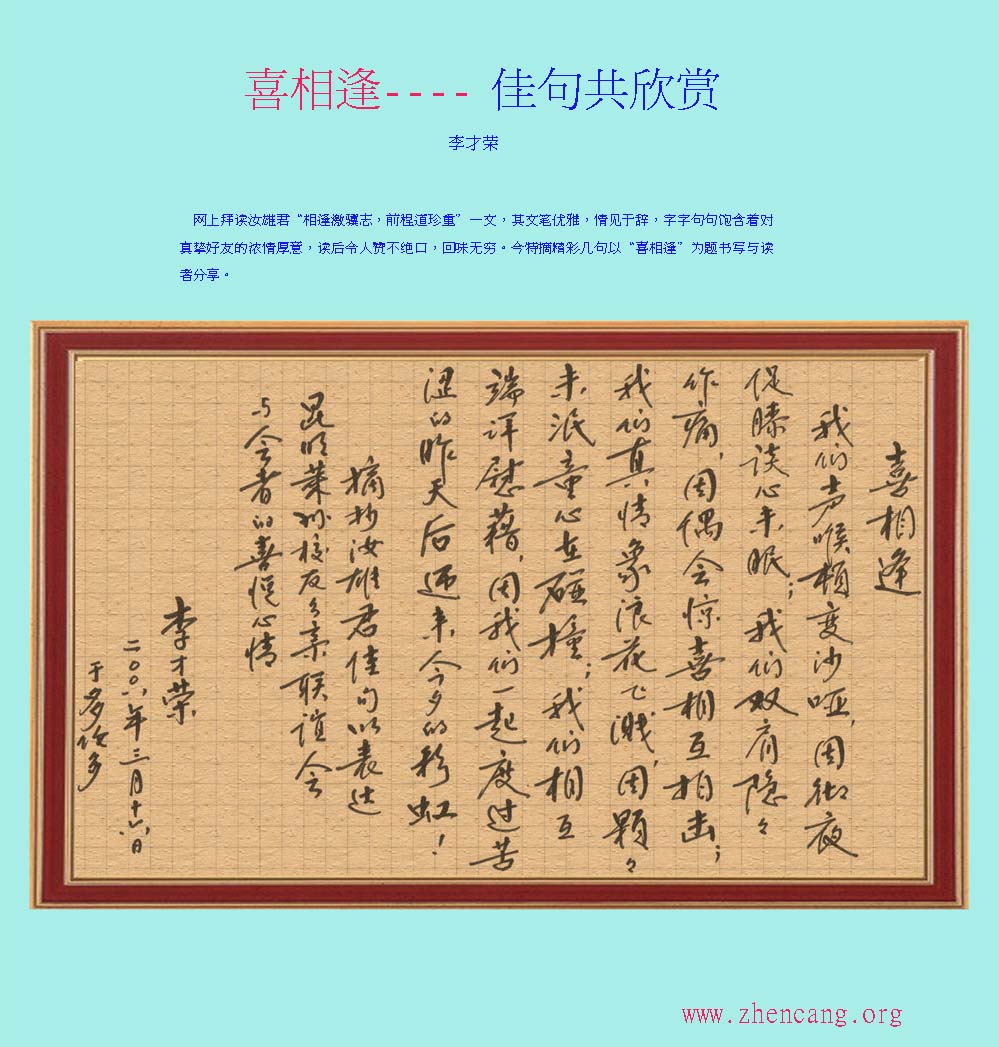 喜相逢---- 佳句共欣赏
李才荣
网上拜读汝雄君“相逢激骥志，前程道珍重”一文，其文笔优雅，情见于辞，字字句句饱含着对
真挚好友的浓情厚意，读后令人赞不绝口，回味无穷。今特摘精彩几句以“喜相逢”为题书写与读
者分享。
喜相逢
我们声喉顿变沙哑，因彻夜
促膝谈心未眠；我们双肩隐々
作痛，因偶会惊喜相互拍击；
我们真情象浪花飞溅，因颗々
未泯童心在碰撞；我们相互
端详慰藉，因我们一起度过苦
涩的昨天后迎来今夕的彩虹！
摘抄汝雄君佳句以表达
昆明莱州校友今亲联谊会
与会者的喜悦心情
李才荣
二〇〇六年三月十六日
于多伦多
www.zhencang.org